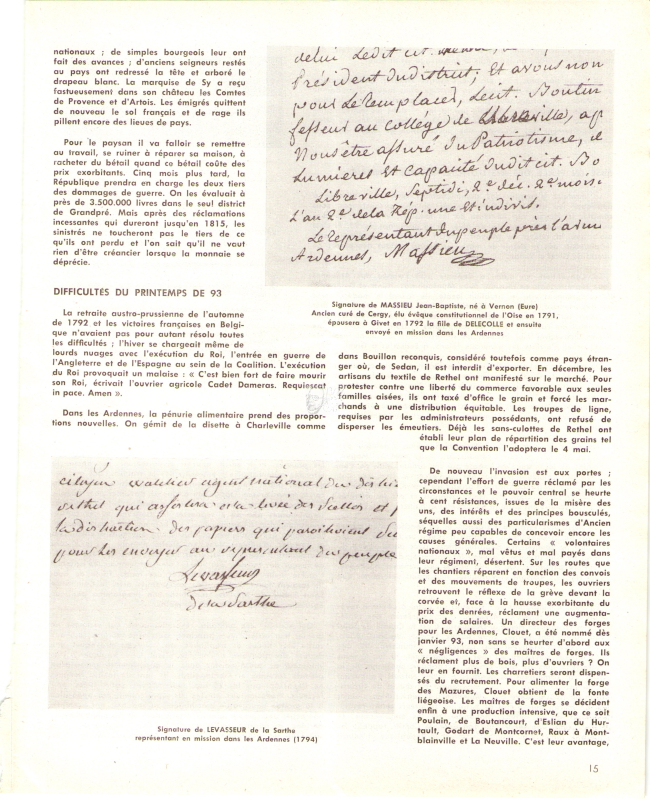 nationaux ; de simples bourgeois leur ont
fait des avances ; d'anciens seigneurs restés
au pays ont redressé la tête et arboré le
drapeau blanc. La marquise de Sy a reçu
fastueusement dans son château les Comtes
de Provence et d'Artois. Les émigrés quittent
de nouveau le sol français et de rage ils
pillent encore des lieues de pays.
Pour le paysan il va falloir se remettre
au travail, se ruiner à réparer sa maison, à
racheter du bétail quand ce bétail coûte des
prix exorbitants. Cinq mois plus tard, la
République prendra en charge les deux tiers
des dommages de guerre. On les évaluait à
près de 3.500.000 livres dans le seul district
de Grandpré. Mais après des réclamations
incessantes qui dureront jusqu'en 1815, les
sinistrés ne toucheront pas le tiers de ce
qu'ils ont perdu et l'on sait qu'il ne vaut
rien d'être créancier lorsque la monnaie se
déprécie.
DIFFICULTÉS DU PRINTEMPS DE 93
La retraite austro-prussienne de l'automne
de 1792 et les victoires françaises en Belgi-
que n'avaient pas pour autant résolu toutes
les difficultés ; l'hiver se chargeait même de
lourds nuages avec l'exécution du Roi, l'entrée en guerre de
l'Angleterre et de l'Espagne au sein de la Coalition. L'exécution
du Roi provoquait un malaise : « C'est bien fort de faire mourir
son Roi, écrivait l'ouvrier agricole Cadet Dameras. Requiescat
in pace. Amen ».
Dans les Ardennes, la pénurie alimentaire prend des propor-
tions nouvelles. On gémit de la disette à Charleville comme
de lui Ledit cit.
Président du district, Et avous nom
pour Le remplacer, Lecit. Boutin
fesseur au collège de Libreville, ap
Nous être assuré du Patriotisme, d
Lumieres et Capacité dudit cit. Bo
Libreville, Septidi, 2e déc. 2e mois.
L'an 2e dela Rép. une et indivis.
Le représentant du peuple près l'arm
Ardennes, Massieu
Signature de MASSIEU Jean-Baptiste, né à Vernon (Eure)
Ancien curé de Cergy, élu évêque constitutionnel de l'Oise en 1791,
épousera à Givet en 1792 la fille de DELECOLLE et ensuite
envoyé en mission dans les Ardennes
dans Bouillon reconquis, considéré toutefois comme pays étran-
ger où, de Sedan, il est interdit d'exporter. En décembre, les
artisans du textile de Rethel ont manifesté sur le marché. Pour
protester contre une liberté du commerce favorable aux seules
familles aisées, ils ont taxé d'office le grain et forcé les mar-
chands à une distribution équitable. Les troupes de ligne,
requises par les administrateurs possédants, ont refusé de
disperser les émeutiers. Déjà les sans-culottes de Rethel ont
établi leur plan de répartition des grains tel
que la Convention l'adoptera le 4 mai.
De nouveau l'invasion est aux portes ;
cependant l'effort de guerre réclamé par les
circonstances et le pouvoir central se heurte
à cent résistances, issues de la misère des
uns, des intérêts et des principes bousculés,
séquelles aussi des particularismes d'Ancien
régime peu capables de concevoir encore les
causes générales. Certains « volontaires
nationaux », mal vêtus et mal payés dans
leur régiment, désertent. Sur les routes que
les chantiers réparent en fonction des convois
et des mouvements de troupes, les ouvriers
retrouvent le réflexe de la grève devant la
corvée et, face à la hausse exorbitante du
prix des denrées, réclament une augmenta-
tion de salaires. Un directeur des forges
pour les Ardennes, Clouet, a été nommé dès
janvier 93, non sans se heurter d'abord aux
« négligences » des maîtres de forges. Ils
réclament plus de bois, plus d'ouvriers ? On
leur en fournit. Les charretiers seront dispen-
sés du recrutement. Pour alimenter la forge
des Mazures, Clouet obtient de la fonte
liégeoise. Les maîtres de forges se décident
enfin à une production intensive, que ce soit
Poulain, de Boutancourt, d'Eslian du Hur-
tault, Godart de Montcornet, Raux à Mont-
blainville et La Neuville. C'est leur avantage,
citoyen agent national du
rethel qui
la distraction des papiers qui paroitroient
pour les envoyer au representant du peuple
Levasseur
de la Sarthe
Signature de LEVASSEUR de la Sarthe
représentant en mission dans les Ardennes (1794)
15